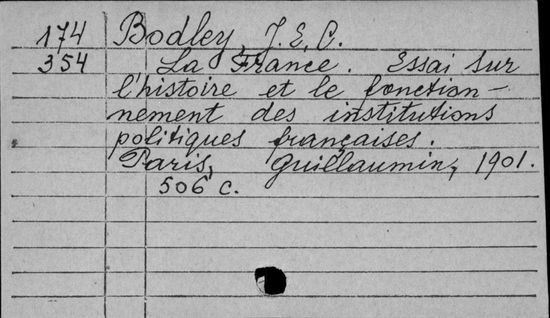 174 Bodley, J. E. C.
354 La France. Essai sur
l'histoire et le fonction-
nement des institutions
politiques françaises.
Paris, Guillaumin, 1901.
506 c.